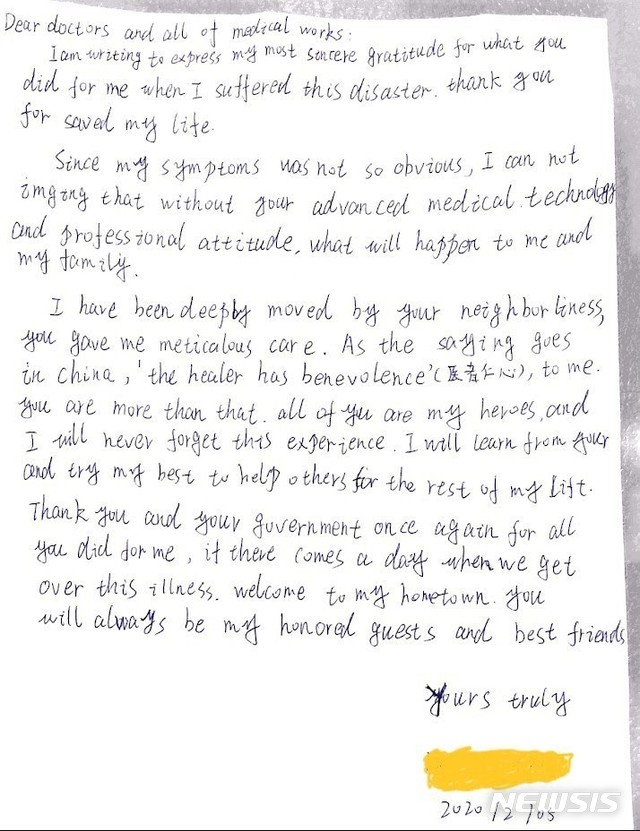 Dear doctors and all of medical works:
I am writing to express my most sincere gratitude for what you
did for me when I suffered this disaster. thank you
for saved my life.
Since my symptoms was not so obvious, I can not
imging that without your advanced medical technology
and professional attitude, what will happen to me and
my family.
I have been deeply moved by your neighborliness,
you gave me meticalous care. As the saying goes
in china, 'the healer has benevolence' (医者仁心), to me.
you are more than that. all of you are my heroes, and
I will never forget this experience. I will learn from your
and try my best to help others for the rest of my lift.
Thank you and your guvernment once again for all
you did for me, if there comes a day when we get
over this illness. welcome to my hometown. you
will always be my honored guests and best friends
yours truly
2020/2/05
NEWSIS